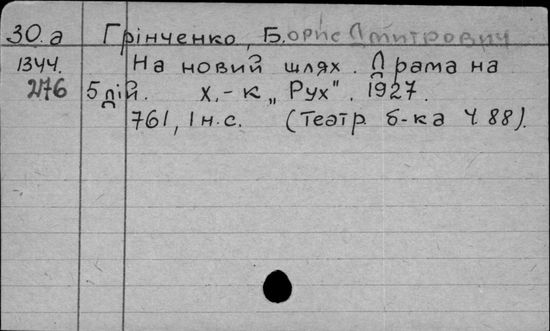 30.а Грінченко, Б.орис Дмитрович
1344. На новий шлях. Драма на
2176 5 дій. Х.-к „Рух". 1927.
761, 1 н.с. (Театр. б-ка Ч 88).